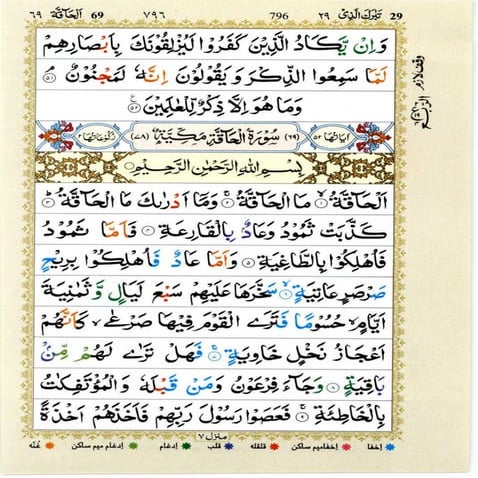 29 تَبٰرَكَ الَّذِیْ ۲۹ 796 ۷۹۶ 69 اَلْحَآقَّة ۶۹
وَاِنْ یَّكَادُ الَّذِیْنَ كَفَرُوْا لَیُزْلِقُوْنَكَ بِاَبْصَارِهِمْ
لَمَّا سَمِعُوا الذِّكْرَ وَ یَقُوْلُوْنَ اِنَّهٗ لَمَجْنُوْنٌ ۟ۘ ۵۱
وَمَا هُوَ اِلَّا ذِكْرٌ لِّلْعٰلَمِیْنَ ۟ ۵۲
وقف لازم
اٰیَاتُهَا ۵۲ (۶۹) سُوْرَةُ الْحَآقَّةِ مَكِّیَّةٌ (۷۸) رُكُوْعَاتُهَا ۲
بِسْمِ اللّٰهِ الرَّحْمٰنِ الرَّحِیْمِ
اَلْحَآقَّةُ ۟ۙ ۱ مَا الْحَآقَّةُ ۟ۚ ۲ وَمَاۤ اَدْرٰىكَ مَا الْحَآقَّةُ ۟ؕ ۳
كَذَّبَتْ ثَمُوْدُ وَعَادٌۢ بِالْقَارِعَةِ ۟ ۴ فَاَمَّا ثَمُوْدُ
فَاُهْلِكُوْا بِالطَّاغِیَةِ ۟ ۵ وَاَمَّا عَادٌ فَاُهْلِكُوْا بِرِیْحٍ
صَرْصَرٍ عَاتِیَةٍ ۟ۙ ۶ سَخَّرَهَا عَلَیْهِمْ سَبْعَ لَیَالٍ وَّ ثَمٰنِیَةَ
اَیَّامٍ ۙ حُسُوْمًا فَتَرَی الْقَوْمَ فِیْهَا صَرْعٰی ۙ كَاَنَّهُمْ
اَعْجَازُ نَخْلٍ خَاوِیَةٍ ۟ۚ ۷ فَهَلْ تَرٰی لَهُمْ مِّنْۢ
بَاقِیَةٍ ۟ ۸ وَجَآءَ فِرْعَوْنُ وَمَنْ قَبْلَهٗ وَالْمُؤْتَفِكٰتُ
بِالْخَاطِئَةِ ۟ۚ ۹ فَعَصَوْا رَسُوْلَ رَبِّهِمْ فَاَخَذَهُمْ اَخْذَةً
منزل ۷
اخفا اخفا میم ساکن قلقله قلب ادغام ادغام میم ساکن غنّه